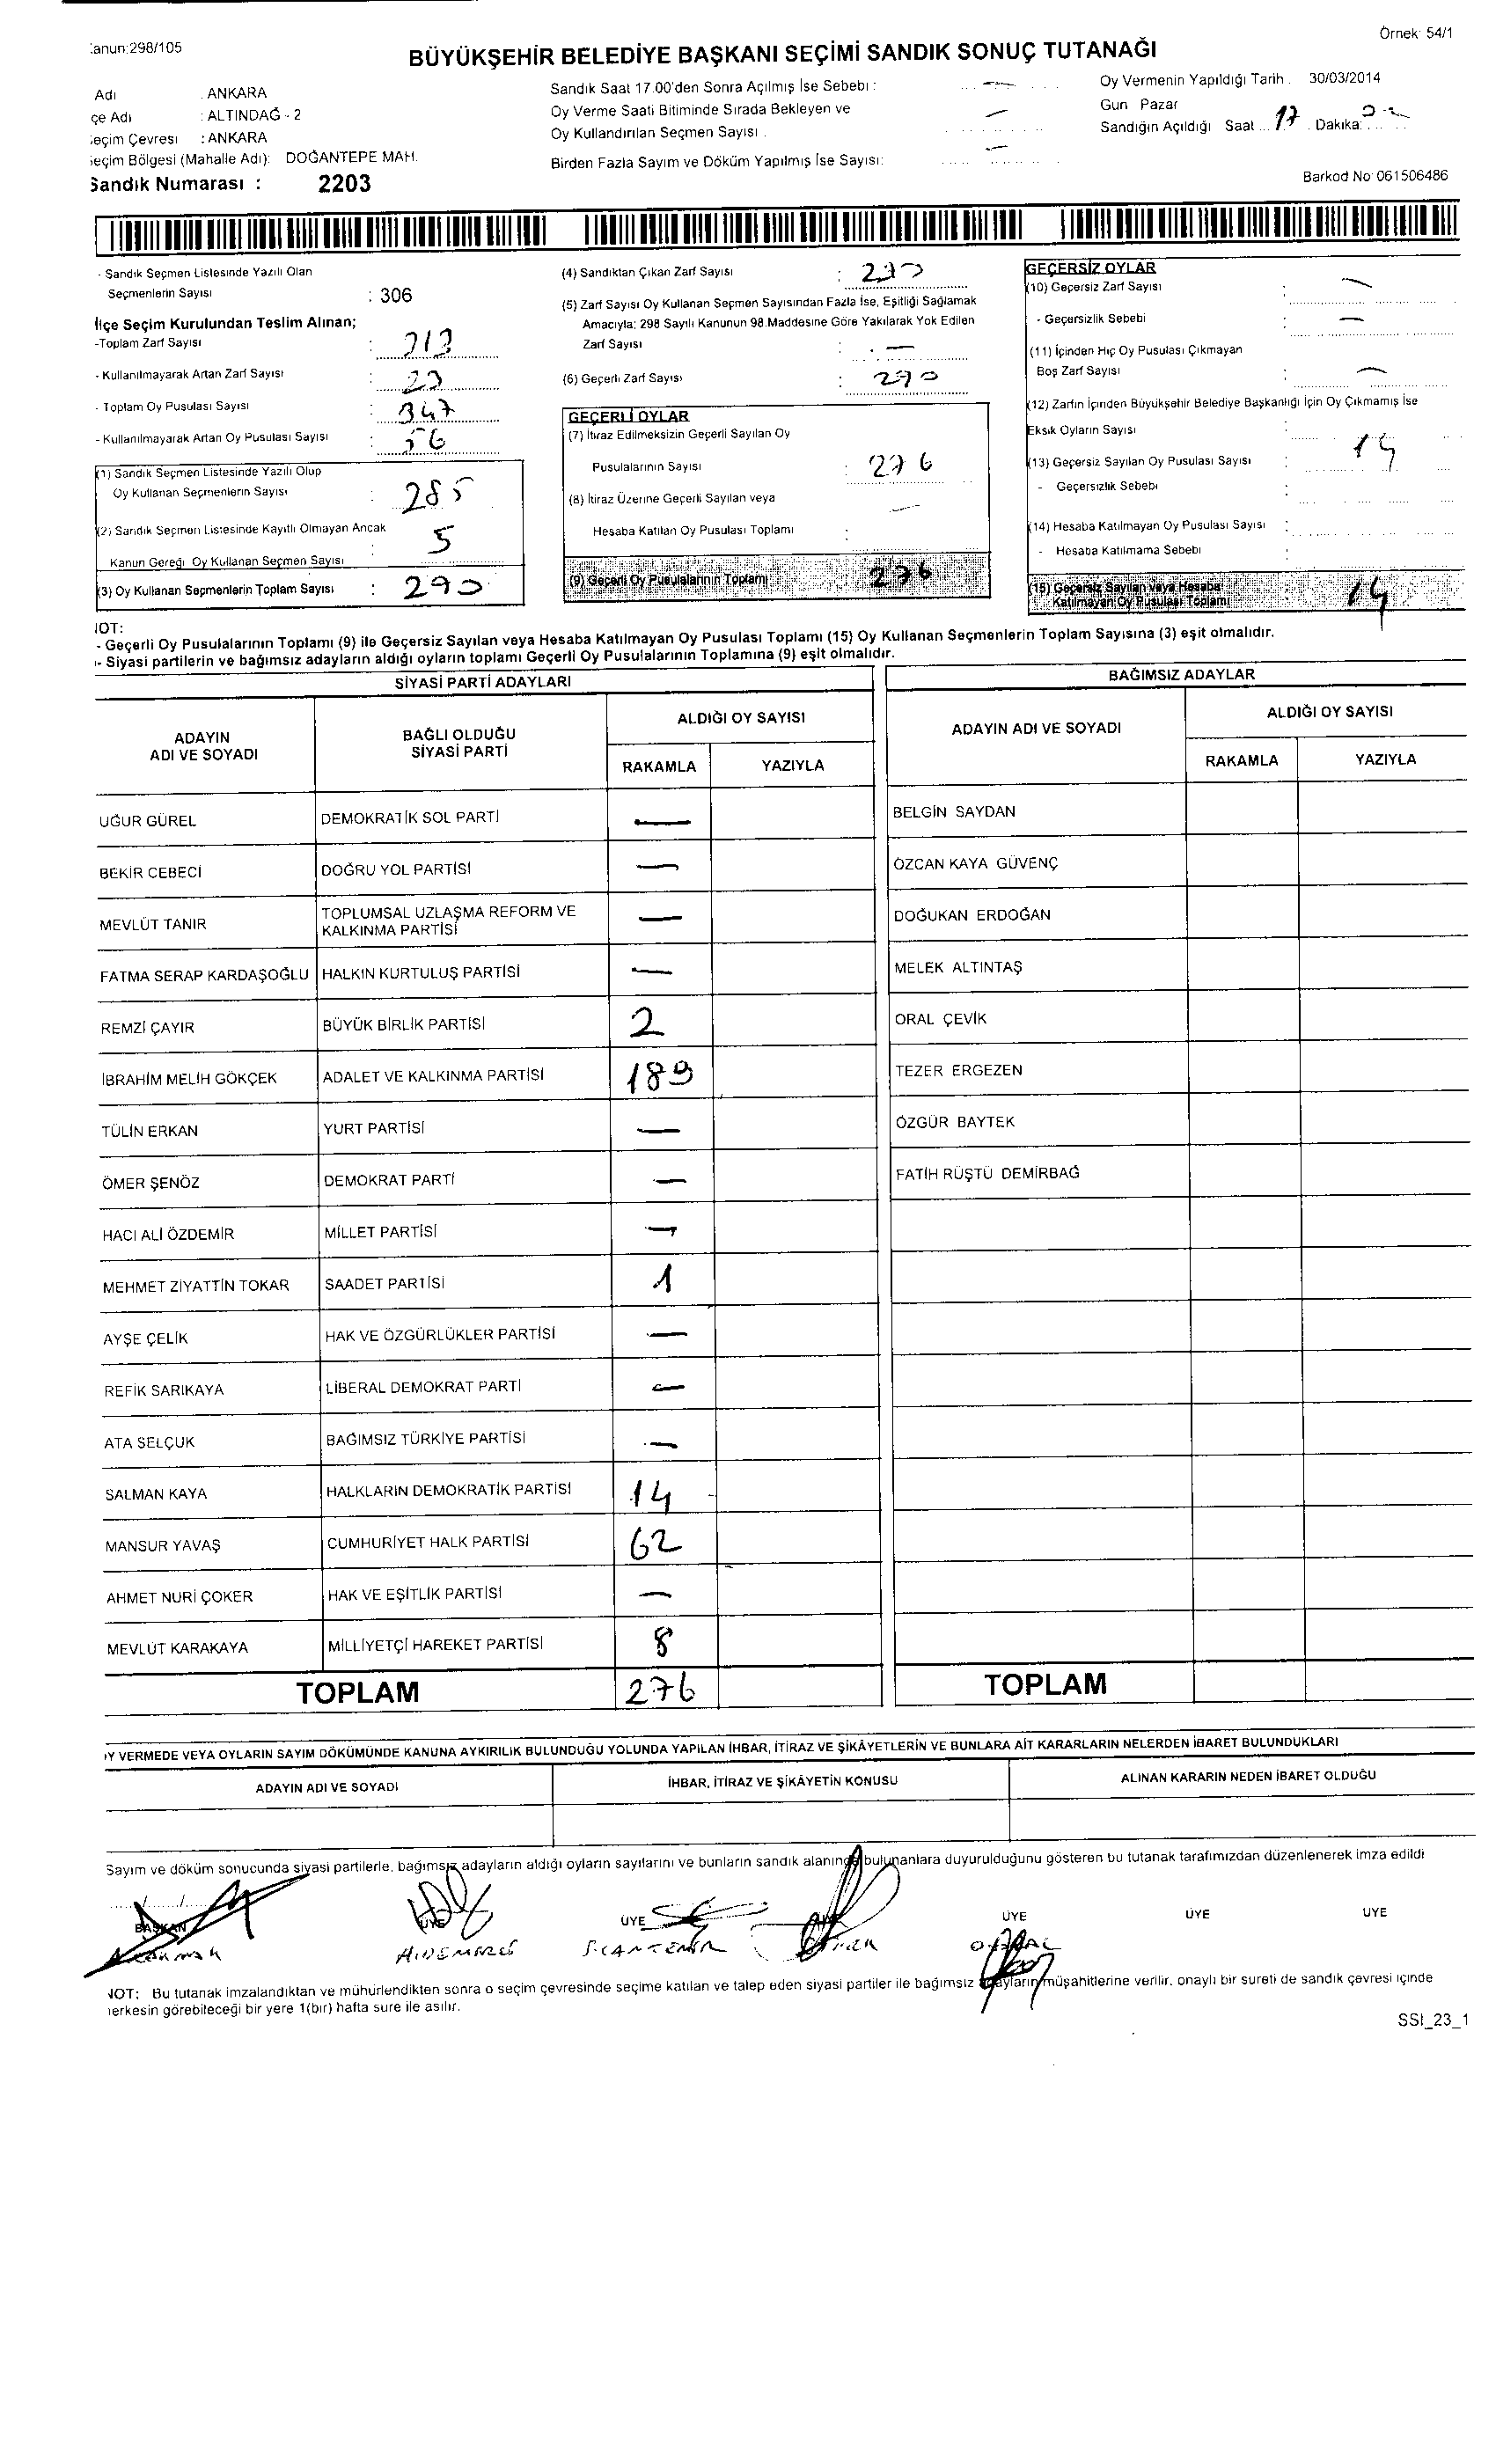 Örnek: 54/1
:anun:298/105
BÜYÜKŞEHİR BELEDİYE BAŞKANI SEÇİMİ SANDIK SONUÇ TUTANAĞI
Adı : ANKARA
çe Adı : ALTINDAĞ - 2
eçim Çevresi : ANKARA
eçim Bölgesi (Mahalle Adı): DOĞANTEPE MAH.
Sandık Numarası : 2203
Sandık Saat 17.00'den Sonra Açılmış İse Sebebi : —
Oy Verme Saati Bitiminde Sırada Bekleyen ve
Oy Kullandırılan Seçmen Sayısı : —
Birden Fazla Sayım ve Döküm Yapılmış İse Sayısı: —
Oy Vermenin Yapıldığı Tarih : 30/03/2014
Gün Pazar
Sandığın Açıldığı Saat ... 17 . Dakika:
Barkod No: 061506486
- Sandık Seçmen Listesinde Yazılı Olan
Seçmenlerin Sayısı : 306
İlçe Seçim Kurulundan Teslim Alınan;
-Toplam Zarf Sayısı : 313
- Kullanılmayarak Artan Zarf Sayısı : 23
- Toplam Oy Pusulası Sayısı : 347
- Kullanılmayarak Artan Oy Pusulası Sayısı :
(1) Sandık Seçmen Listesinde Yazılı Olup
Oy Kullanan Seçmenlerin Sayısı : 285
(2) Sandık Seçmen Listesinde Kayıtlı Olmayan Ancak
Kanun Gereği Oy Kullanan Seçmen Sayısı : 5
(3) Oy Kullanan Seçmenlerin Toplam Sayısı : 290
(4) Sandıktan Çıkan Zarf Sayısı : 290
(5) Zarf Sayısı Oy Kullanan Seçmen Sayısından Fazla İse, Eşitliği Sağlamak
Amacıyla; 298 Sayılı Kanunun 98.Maddesine Göre Yakılarak Yok Edilen
Zarf Sayısı : —
(6) Geçerli Zarf Sayısı : 290
GEÇERLİ OYLAR
(7) İtiraz Edilmeksizin Geçerli Sayılan Oy
Pusulalarının Sayısı : 276
(8) İtiraz Üzerine Geçerli Sayılan veya
Hesaba Katılan Oy Pusulası Toplamı : —
(9) Geçerli Oy Pusulalarının Toplamı 276
GEÇERSİZ OYLAR
(10) Geçersiz Zarf Sayısı : —
- Geçersizlik Sebebi : —
(11) İçinden Hiç Oy Pusulası Çıkmayan
Boş Zarf Sayısı : —
(12) Zarfın İçinden Büyükşehir Belediye Başkanlığı İçin Oy Çıkmamış İse
Eksik Oyların Sayısı :
(13) Geçersiz Sayılan Oy Pusulası Sayısı : 14
- Geçersizlik Sebebi
(14) Hesaba Katılmayan Oy Pusulası Sayısı :
- Hesaba Katılmama Sebebi :
(15) Geçersiz Sayılan veya Hesaba
Katılmayan Oy Pusulası Toplamı 14
NOT:
- Geçerli Oy Pusulalarının Toplamı (9) ile Geçersiz Sayılan veya Hesaba Katılmayan Oy Pusulası Toplamı (15) Oy Kullanan Seçmenlerin Toplam Sayısına (3) eşit olmalıdır.
- Siyasi partilerin ve bağımsız adayların aldığı oyların toplamı Geçerli Oy Pusulalarının Toplamına (9) eşit olmalıdır.
SİYASİ PARTİ ADAYLARI
ADAYIN ADI VE SOYADI BAĞLI OLDUĞU SİYASİ PARTİ ALDIĞI OY SAYISI
RAKAMLA YAZIYLA
UĞUR GÜREL DEMOKRATİK SOL PARTİ —
BEKİR CEBECİ DOĞRU YOL PARTİSİ —
MEVLÜT TANIR TOPLUMSAL UZLAŞMA REFORM VE KALKINMA PARTİSİ —
FATMA SERAP KARDAŞOĞLU HALKIN KURTULUŞ PARTİSİ —
REMZİ ÇAYIR BÜYÜK BİRLİK PARTİSİ 2
İBRAHİM MELİH GÖKÇEK ADALET VE KALKINMA PARTİSİ 189
TÜLİN ERKAN YURT PARTİSİ —
ÖMER ŞENÖZ DEMOKRAT PARTİ —
HACI ALİ ÖZDEMİR MİLLET PARTİSİ —
MEHMET ZİYATTİN TOKAR SAADET PARTİSİ 1
AYŞE ÇELİK HAK VE ÖZGÜRLÜKLER PARTİSİ —
REFİK SARIKAYA LİBERAL DEMOKRAT PARTİ —
ATA SELÇUK BAĞIMSIZ TÜRKİYE PARTİSİ —
SALMAN KAYA HALKLARIN DEMOKRATİK PARTİSİ 14
MANSUR YAVAŞ CUMHURİYET HALK PARTİSİ 62
AHMET NURİ ÇOKER HAK VE EŞİTLİK PARTİSİ —
MEVLÜT KARAKAYA MİLLİYETÇİ HAREKET PARTİSİ 8
TOPLAM 276
BAĞIMSIZ ADAYLAR
ADAYIN ADI VE SOYADI ALDIĞI OY SAYISI
RAKAMLA YAZIYLA
BELGİN SAYDAN
ÖZCAN KAYA GÜVENÇ
DOĞUKAN ERDOĞAN
MELEK ALTINTAŞ
ORAL ÇEVİK
TEZER ERGEZEN
ÖZGÜR BAYTEK
FATİH RÜŞTÜ DEMİRBAĞ
TOPLAM
Y VERMEDE VEYA OYLARIN SAYIM DÖKÜMÜNDE KANUNA AYKIRILIK BULUNDUĞU YOLUNDA YAPILAN İHBAR, İTİRAZ VE ŞİKÂYETLERİN VE BUNLARA AİT KARARLARIN NELERDEN İBARET BULUNDUKLARI
ADAYIN ADI VE SOYADI İHBAR, İTİRAZ VE ŞİKÂYETİN KONUSU ALINAN KARARIN NEDEN İBARET OLDUĞU
Sayım ve döküm sonucunda siyasi partilerle, bağımsız adayların aldığı oyların sayılarını ve bunların sandık alanında bulunanlara duyurulduğunu gösteren bu tutanak tarafımızdan düzenlenerek imza edildi
BAŞKAN ÜYE ÜYE ÜYE ÜYE ÜYE
NOT: Bu tutanak imzalandıktan ve mühürlendikten sonra o seçim çevresinde seçime katılan ve talep eden siyasi partiler ile bağımsız adayların müşahitlerine verilir, onaylı bir sureti de sandık çevresi içinde
herkesin görebileceği bir yere 1(bir) hafta süre ile asılır.
SSI_23_1